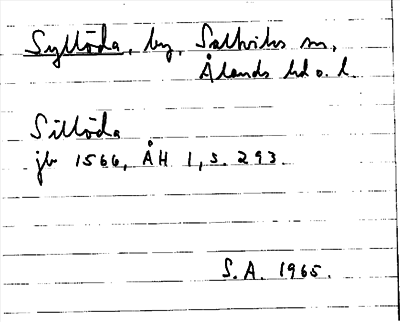 Syllöda, by, Saltviks sn,
Ålands hd o. l.
Sillöda
jb 1566, ÅH 1, s. 293.
S.A. 1965.